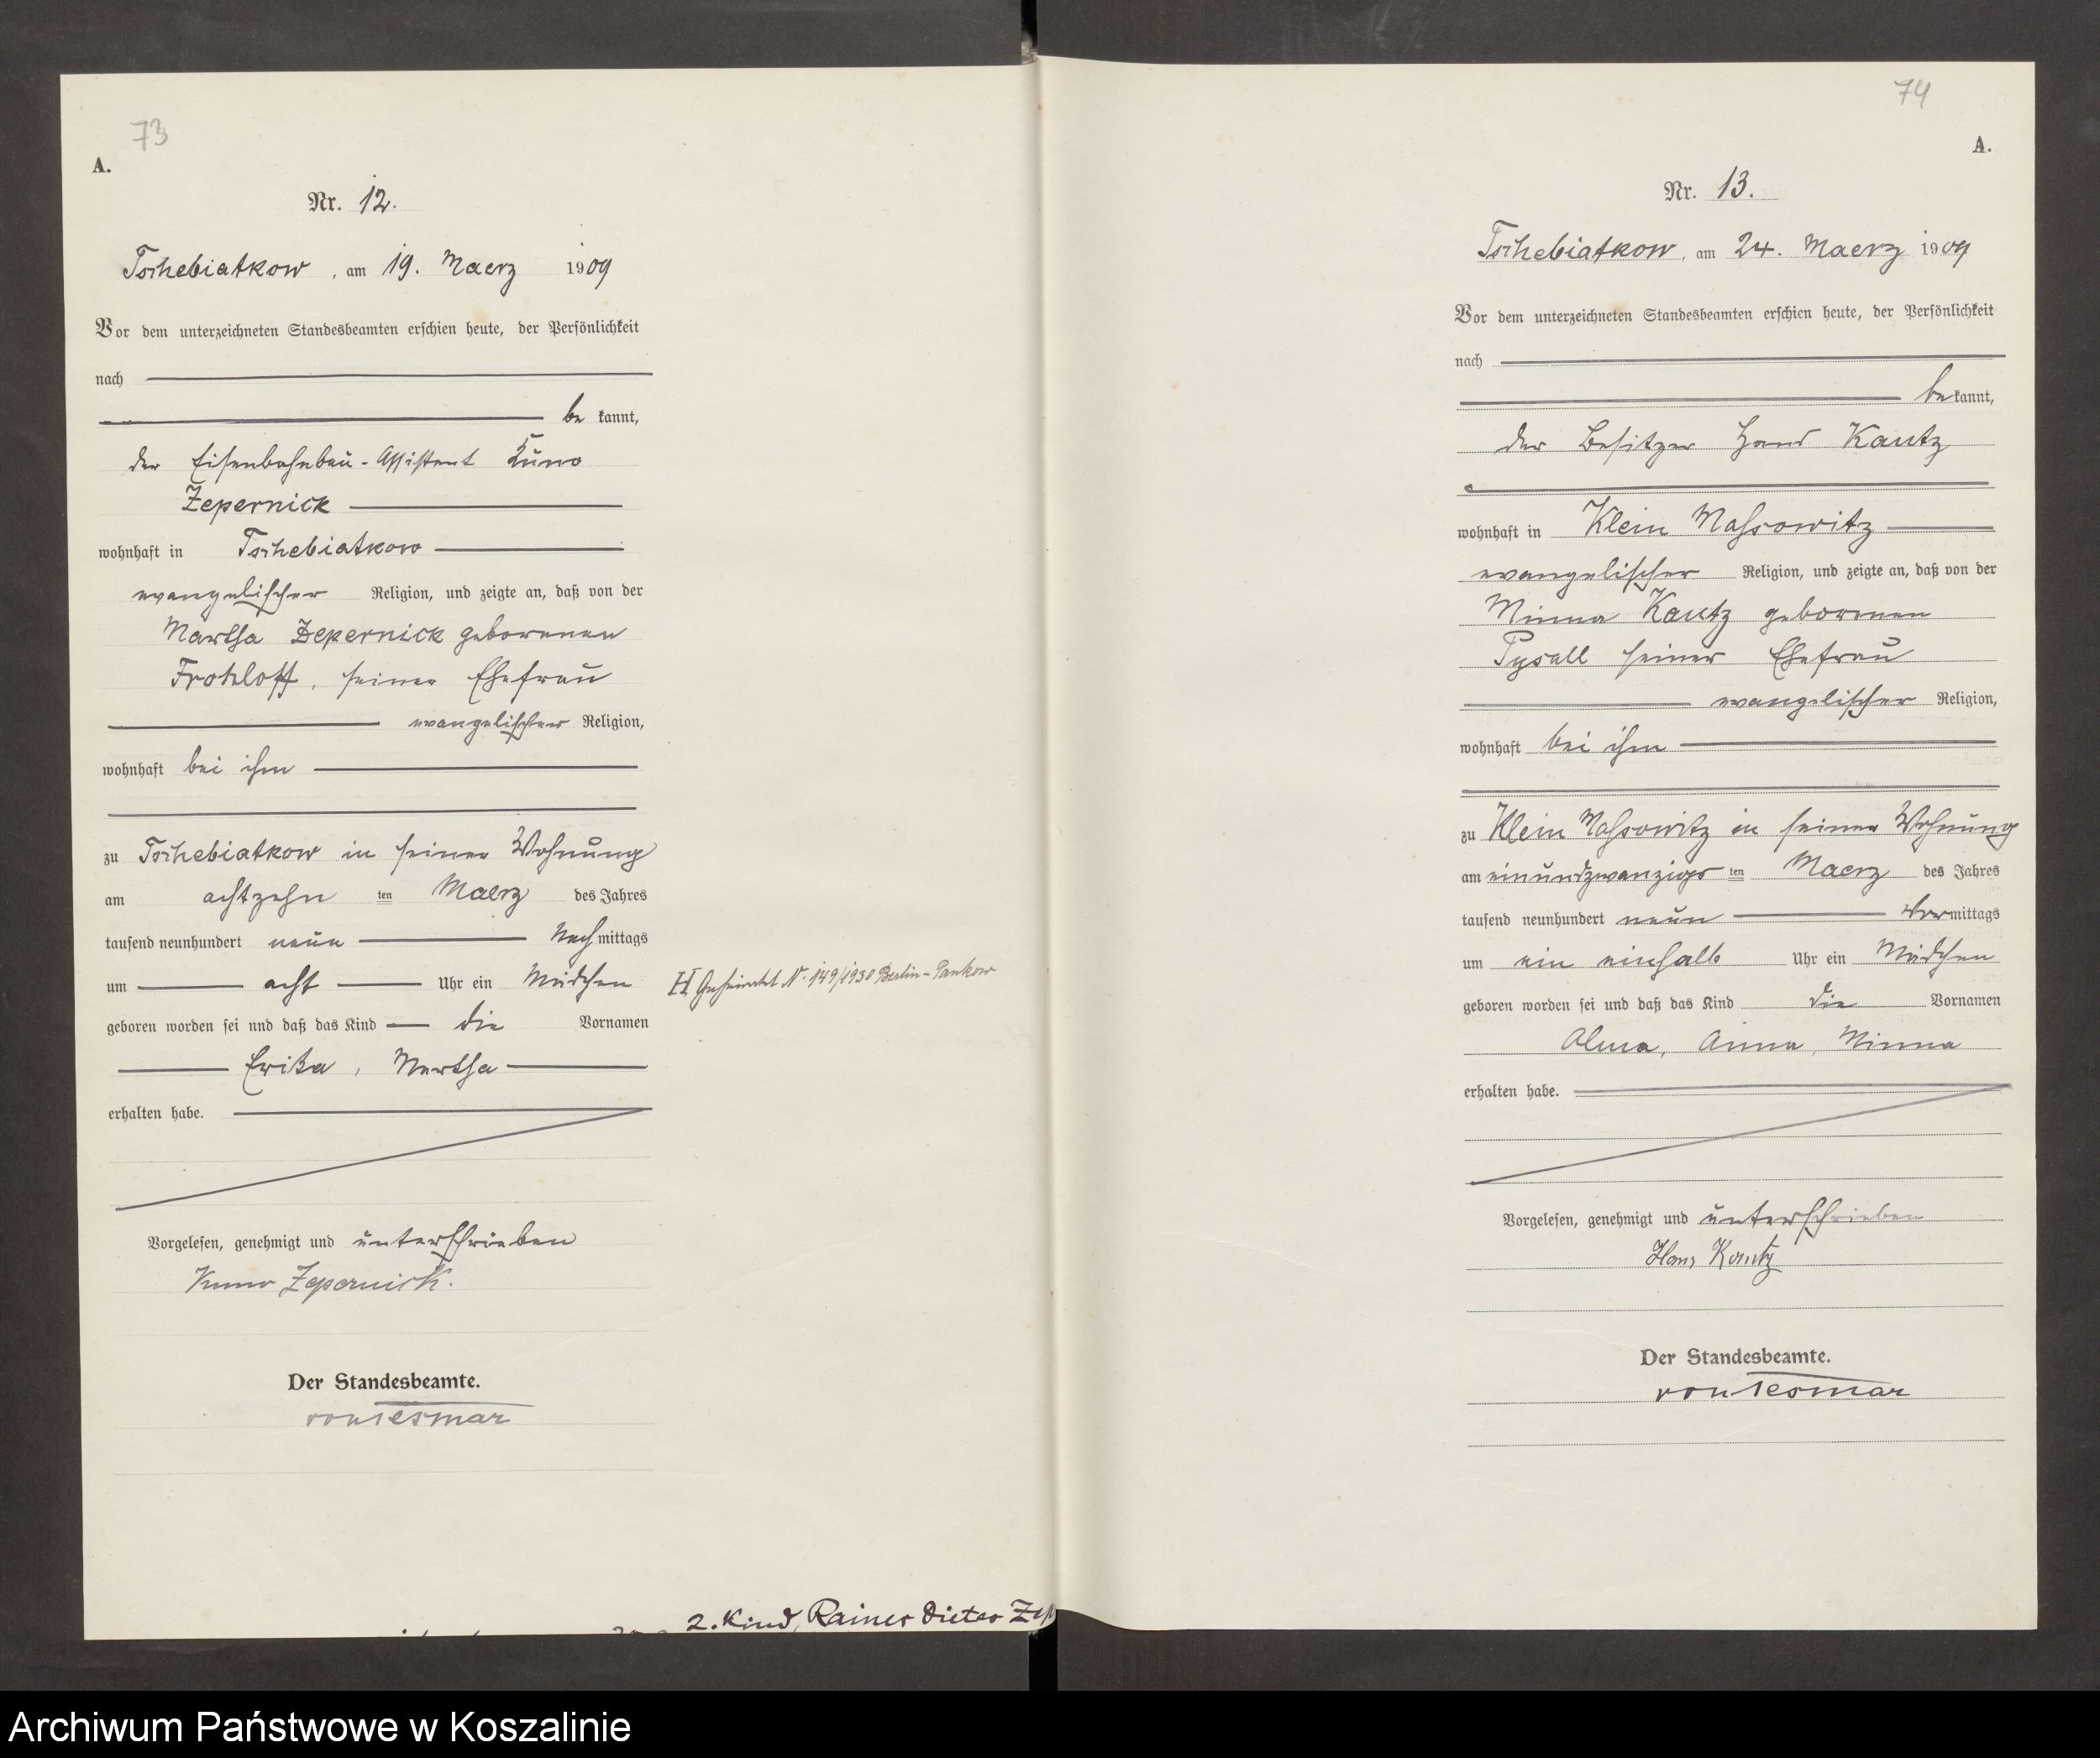 73
A.
Nr. 12.
Tschebiatkow, am 19. Maerz 1909
Vor dem unterzeichneten Standesbeamten erschien heute, der Persönlichkeit
nach
be kannt,
der Eisenbahnbau-Assistent Kuno
Zepernick
wohnhaft in Tschebiatkow
evangelischer Religion, und zeigte an, daß von der
Martha Zepernick geborenen
Frohloff, seiner Ehefrau
evangelischer Religion,
wohnhaft bei ihm
zu Tschebiatkow in seiner Wohnung
am achtzehn ten Maerz des Jahres
tausend neunhundert neun Nachmittags
um acht Uhr ein Mädchen
geboren worden sei und daß das Kind die Vornamen
Erika, Martha
erhalten habe.
Vorgelesen, genehmigt und unterschrieben
Kuno Zepernick.
Der Standesbeamte.
von Tesmar
H Geheiratet N. 149/1938 Berlin-Pankow
2. Kind, Rainer Dieter
74
A.
Nr. 13.
Tschebiatkow, am 24. Maerz 1909
Vor dem unterzeichneten Standesbeamten erschien heute, der Persönlichkeit
nach
bekannt,
der Besitzer Hans Kautz
wohnhaft in Klein Massowitz
evangelischer Religion, und zeigte an, daß von der
Minna Kautz geborenen
Pysall seiner Ehefrau
evangelischer Religion,
wohnhaft bei ihm
zu Klein Massowitz in seiner Wohnung
am einundzwanzigs ten Maerz des Jahres
tausend neunhundert neun Vormittags
um ein einhalb Uhr ein Mädchen
geboren worden sei und daß das Kind die Vornamen
Alma, Anna, Minna
erhalten habe.
Vorgelesen, genehmigt und unterschrieben
Hans Kautz
Der Standesbeamte.
von Tesmar
Archiwum Państwowe w Koszalinie